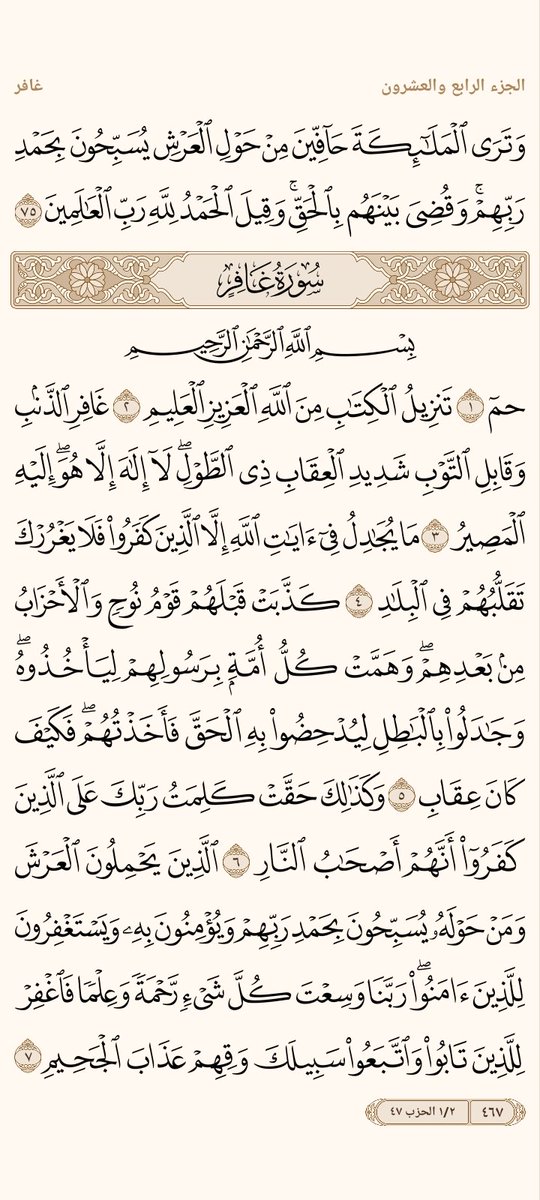 الجزء الرابع والعشرون غافر
وَتَرَى ٱلْمَلَـٰٓئِكَةَ حَآفِّينَ مِنْ حَوْلِ ٱلْعَرْشِ يُسَبِّحُونَ بِحَمْدِ
رَبِّهِمْ ۖ وَقُضِىَ بَيْنَهُم بِٱلْحَقِّ ۚ وَقِيلَ ٱلْحَمْدُ لِلَّهِ رَبِّ ٱلْعَـٰلَمِينَ ٧٥
سُورَةُ غَافِرٍ
بِسْمِ ٱللَّهِ ٱلرَّحْمَـٰنِ ٱلرَّحِيمِ
حمٓ ١ تَنزِيلُ ٱلْكِتَـٰبِ مِنَ ٱللَّهِ ٱلْعَزِيزِ ٱلْعَلِيمِ ٢ غَافِرِ ٱلذَّنۢبِ
وَقَابِلِ ٱلتَّوْبِ شَدِيدِ ٱلْعِقَابِ ذِى ٱلطَّوْلِ ۖ لَآ إِلَـٰهَ إِلَّا هُوَ ۖ إِلَيْهِ
ٱلْمَصِيرُ ٣ مَا يُجَـٰدِلُ فِىٓ ءَايَـٰتِ ٱللَّهِ إِلَّا ٱلَّذِينَ كَفَرُوا۟ فَلَا يَغْرُرْكَ
تَقَلُّبُهُمْ فِى ٱلْبِلَـٰدِ ٤ كَذَّبَتْ قَبْلَهُمْ قَوْمُ نُوحٍ وَٱلْأَحْزَابُ
مِنۢ بَعْدِهِمْ ۖ وَهَمَّتْ كُلُّ أُمَّةٍۭ بِرَسُولِهِمْ لِيَأْخُذُوهُ ۖ
وَجَـٰدَلُوا۟ بِٱلْبَـٰطِلِ لِيُدْحِضُوا۟ بِهِ ٱلْحَقَّ فَأَخَذْتُهُمْ ۖ فَكَيْفَ
كَانَ عِقَابِ ٥ وَكَذَٰلِكَ حَقَّتْ كَلِمَتُ رَبِّكَ عَلَى ٱلَّذِينَ
كَفَرُوٓا۟ أَنَّهُمْ أَصْحَـٰبُ ٱلنَّارِ ٦ ٱلَّذِينَ يَحْمِلُونَ ٱلْعَرْشَ
وَمَنْ حَوْلَهُۥ يُسَبِّحُونَ بِحَمْدِ رَبِّهِمْ وَيُؤْمِنُونَ بِهِۦ وَيَسْتَغْفِرُونَ
لِلَّذِينَ ءَامَنُوا۟ ۖ رَبَّنَا وَسِعْتَ كُلَّ شَىْءٍ رَّحْمَةً وَعِلْمًا فَٱغْفِرْ
لِلَّذِينَ تَابُوا۟ وَٱتَّبَعُوا۟ سَبِيلَكَ وَقِهِمْ عَذَابَ ٱلْجَحِيمِ ٧
٤٦٧ ١/٢ الحزب ٤٧